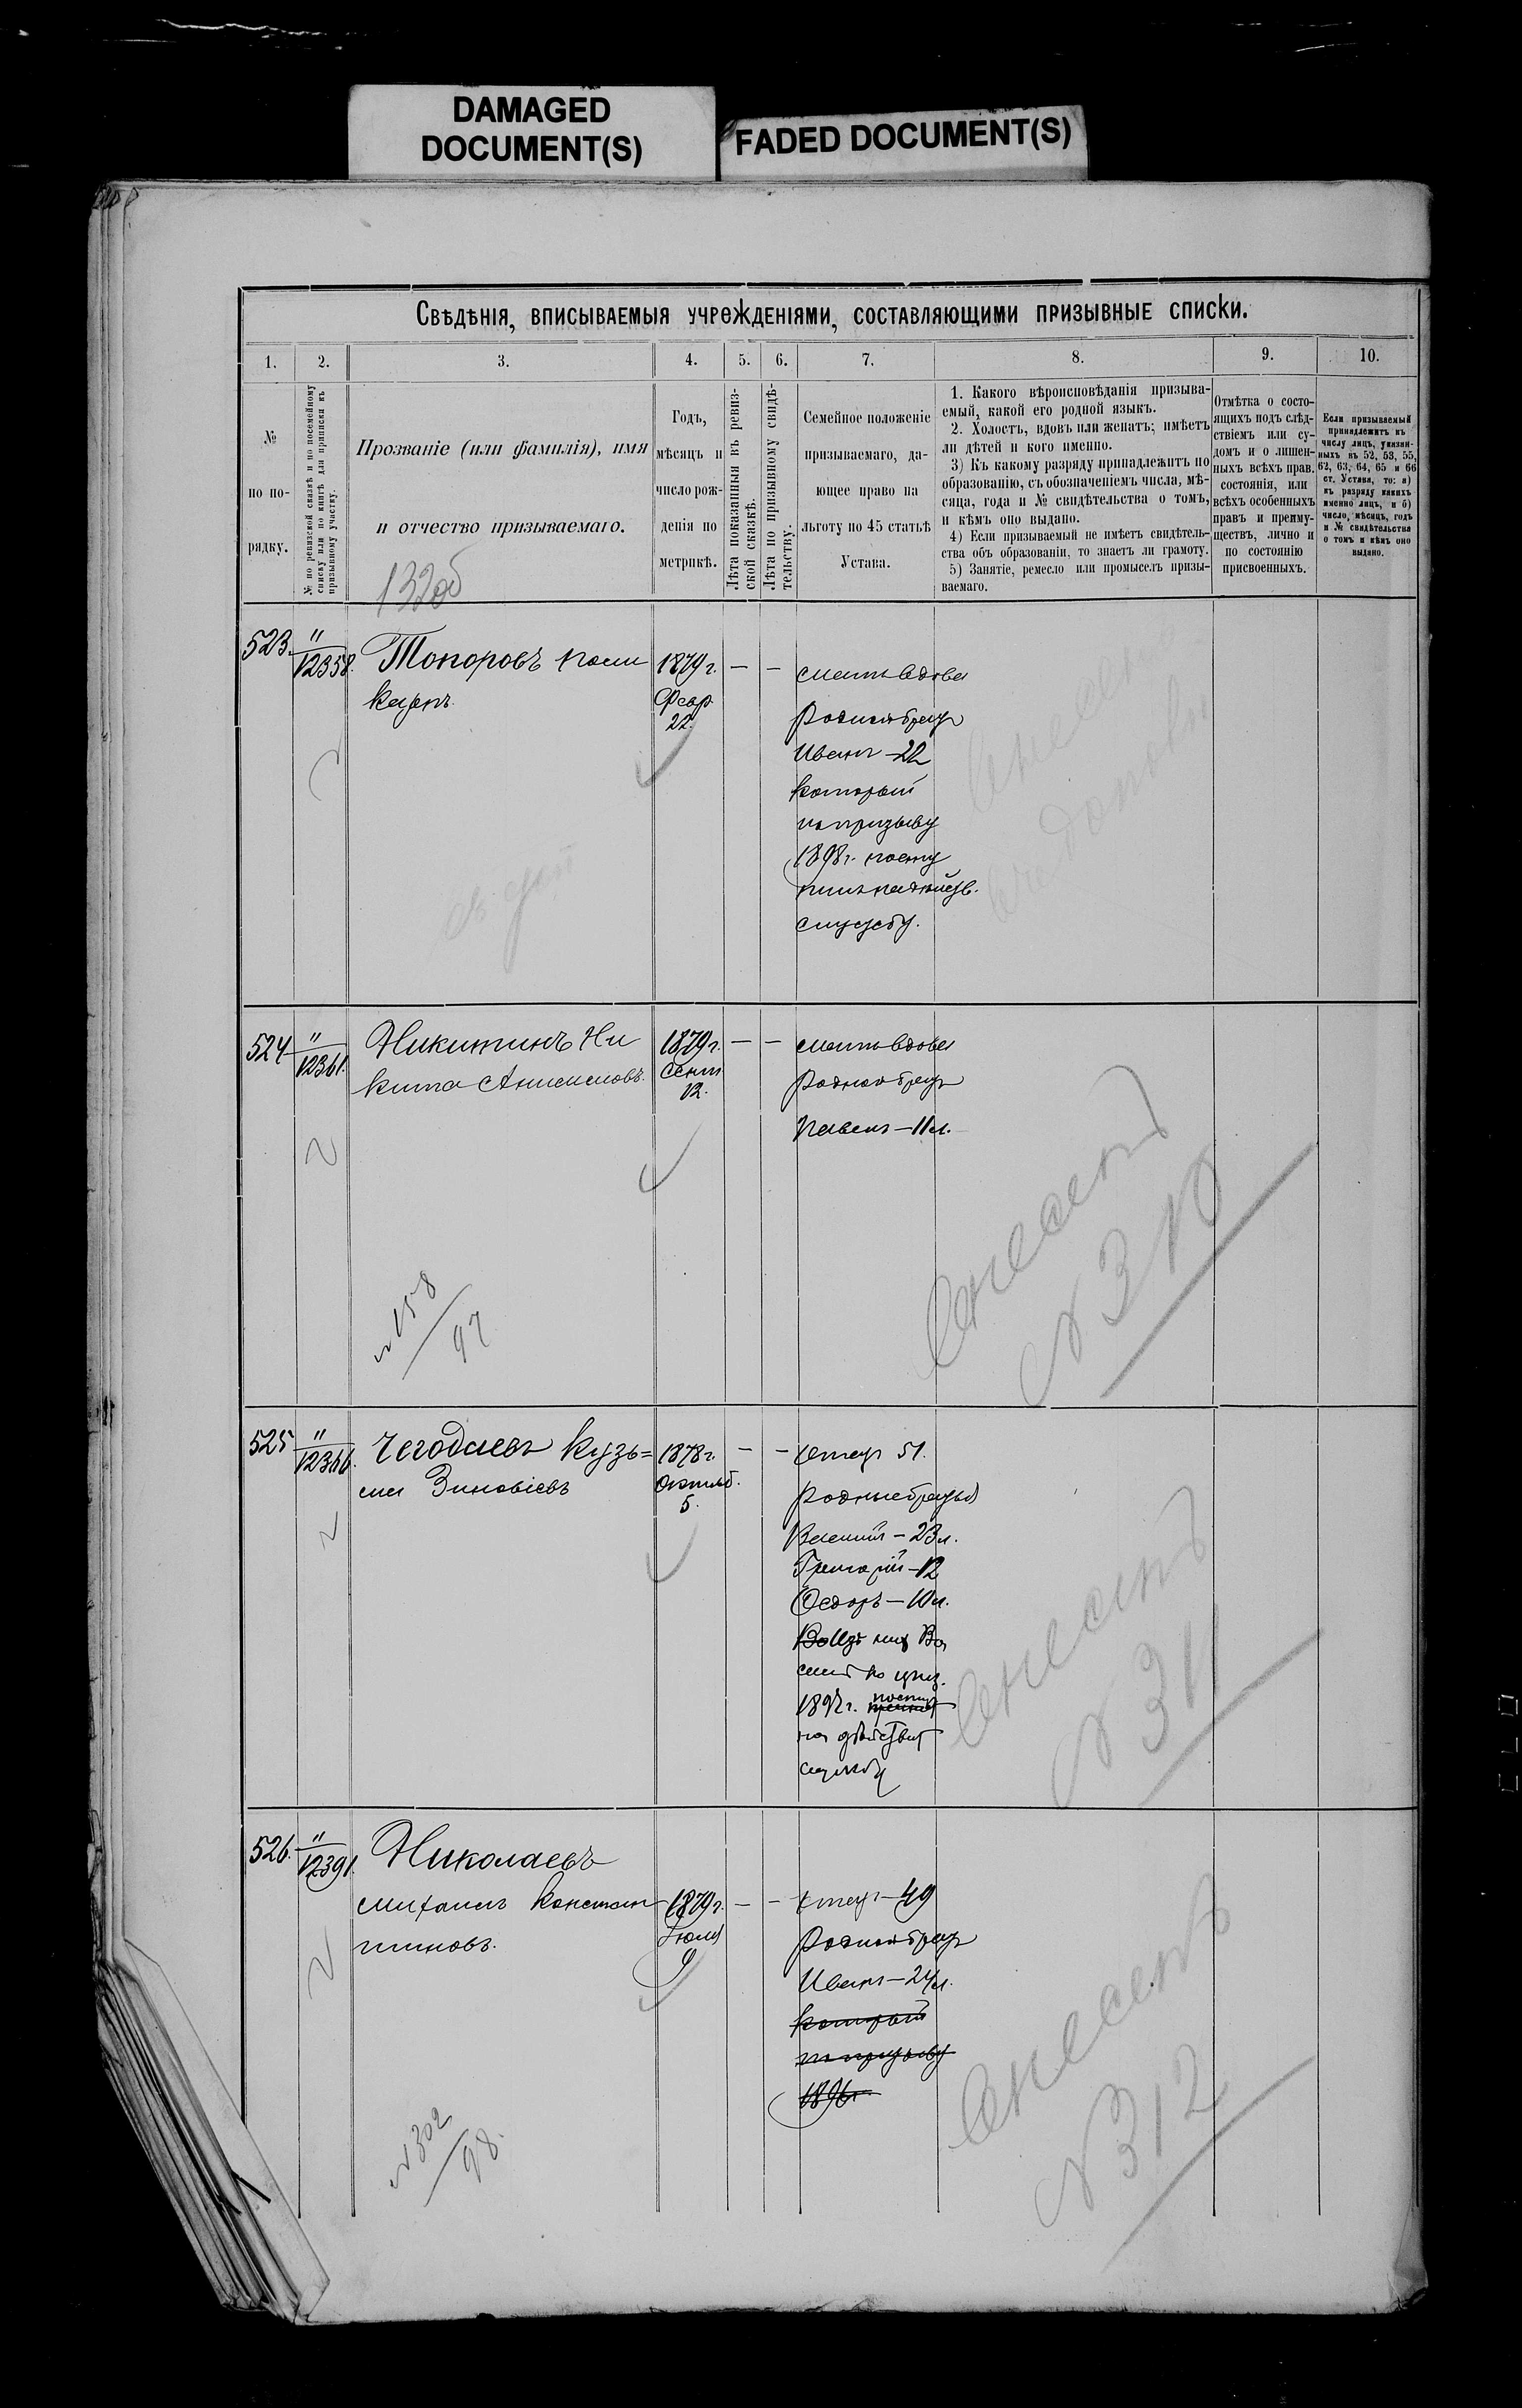 DAMAGED
DOCUMENT(S)
FADED DOCUMENT(S)
Свѣдѣнія, вписываемыя учрежденіями, составляющими призывные списки.
1.
2.
3.
4.
5.
6.
7.
8.
9.
10.
№
по по-
рядку.
№ по ревизской сказкѣ и по посемейному
списку или по книгѣ для приписки къ
призывному участку.
Прозваніе (или фамилія), имя
и отчество призываемаго.
Годъ,
мѣсяцъ и
число рож-
денія по
метрикѣ.
Лѣта показанныя въ ревиз-
ской сказкѣ.
Лѣта по призывному свидѣ-
тельству.
Семейное положеніе
призываемаго, да-
ющее право на
льготу по 45 статьѣ
Устава.
1. Какого вѣроисповѣданія призыва-
емый, какой его родной языкъ.
2. Холостъ, вдовъ или женатъ; имѣетъ
ли дѣтей и кого именно.
3) Къ какому разряду принадлежитъ по
образованію, съ обозначеніемъ числа, мѣ-
сяца, года и № свидѣтельства о томъ,
и кѣмъ оно выдано.
4) Если призываемый не имѣетъ свидѣтель-
ства объ образованіи, то знаетъ ли грамоту.
5) Занятіе, ремесло или промыселъ призы-
ваемаго.
Отмѣтка о состо-
ящихъ подъ слѣд-
ствіемъ или су-
домъ и о лишен-
ныхъ всѣхъ прав.
состоянія, или
всѣхъ особенныхъ
правъ и преиму-
ществъ, лично и
по состоянію
присвоенныхъ.
Если призываемый
принадлежитъ къ
числу лицъ, указан-
ныхъ въ 52, 53, 55,
62, 63, 64, 65 и 66
ст. Устава, то: а)
къ разряду какихъ
именно лицъ, и б)
число, мѣсяцъ, годъ
и № свидѣтельства
о томъ и кѣмъ оно
выдано.
132об
523.
"
12358.
Топоровъ Поли
карпъ
1879 г.
Февр
22.
— —
мать вдова
родной братъ
Иванъ — 22
который
по призыву
1898 г. посту
пилъ на дѣйств.
службу.
524
"
12361.
Никитинъ Ни
кита Анисимовъ.
1879 г.
Сент
12.
— —
мать вдова
родной братъ
Павелъ — 11 л.
Внесенъ
№ 310
№ 158
97
525
"
12366.
Чегодаевъ Кузь=
ма Зиновіевъ
1878 г.
Октяб.
5.
— —
Отецъ 51.
родные братья
Василій — 23 л.
Григорій — 12
Ѳедоръ — 10 л.
Изъ них Ва
силій по приз.
1897 г. поступ
на дѣйствит
службу
Внесенъ
№ 311
526.
"
12391.
Николаевъ
Михаилъ Констан
тиновъ.
1879 г.
Іюля
9
— —
Отецъ — 49
родной братъ
Иванъ — 24 л.
который
по призыву
1896 г
Внесенъ
№ 312
№ 302
98.